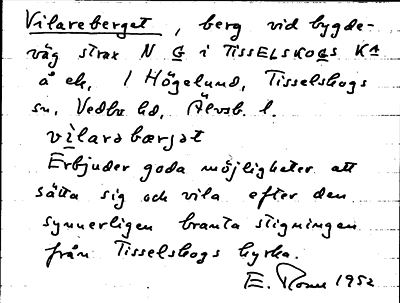 Vilareberget, berg vid bygde-
väg strax N G i TISSELSKOGS KA
å ek, / Högelund, Tisselskogs
sn, Vedbo hd, Älvsb. l.
vìlarabærjat
Erbjuder goda möjligheter att
sätta sig och vila efter den
synnerligen branta stigningen
från Tisselskogs kyrka.
E. 1952